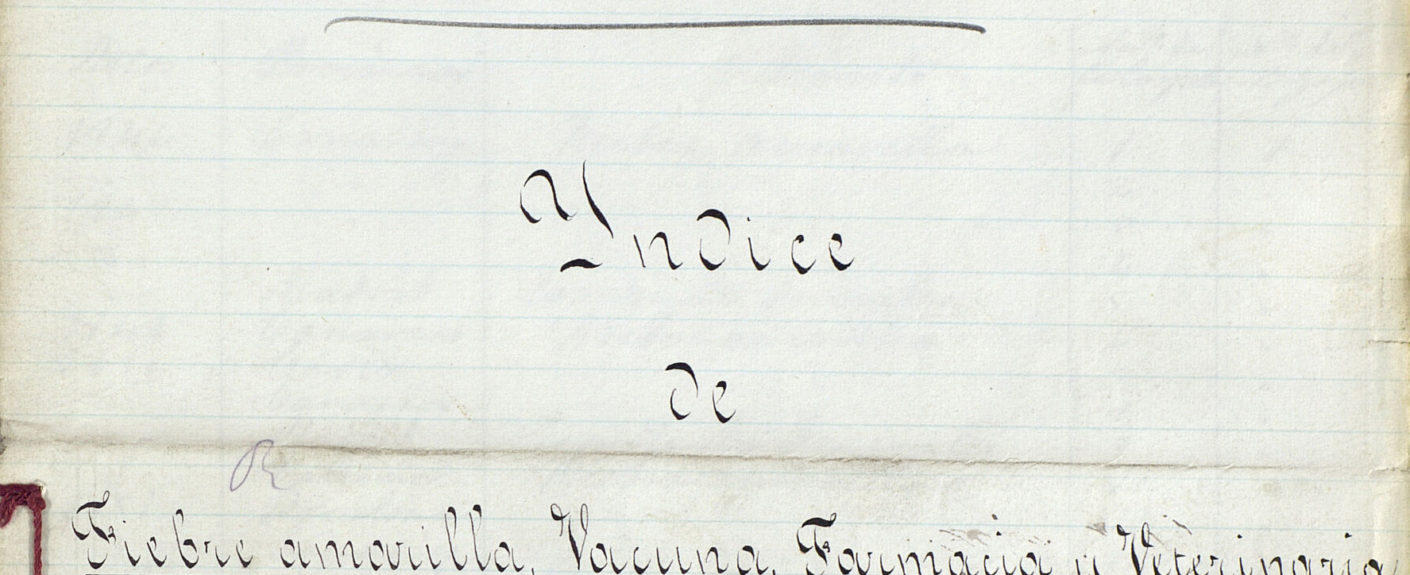 Yndice
de
R
Fiebre amarilla, Vacuna, Farmacia y Veterinaria